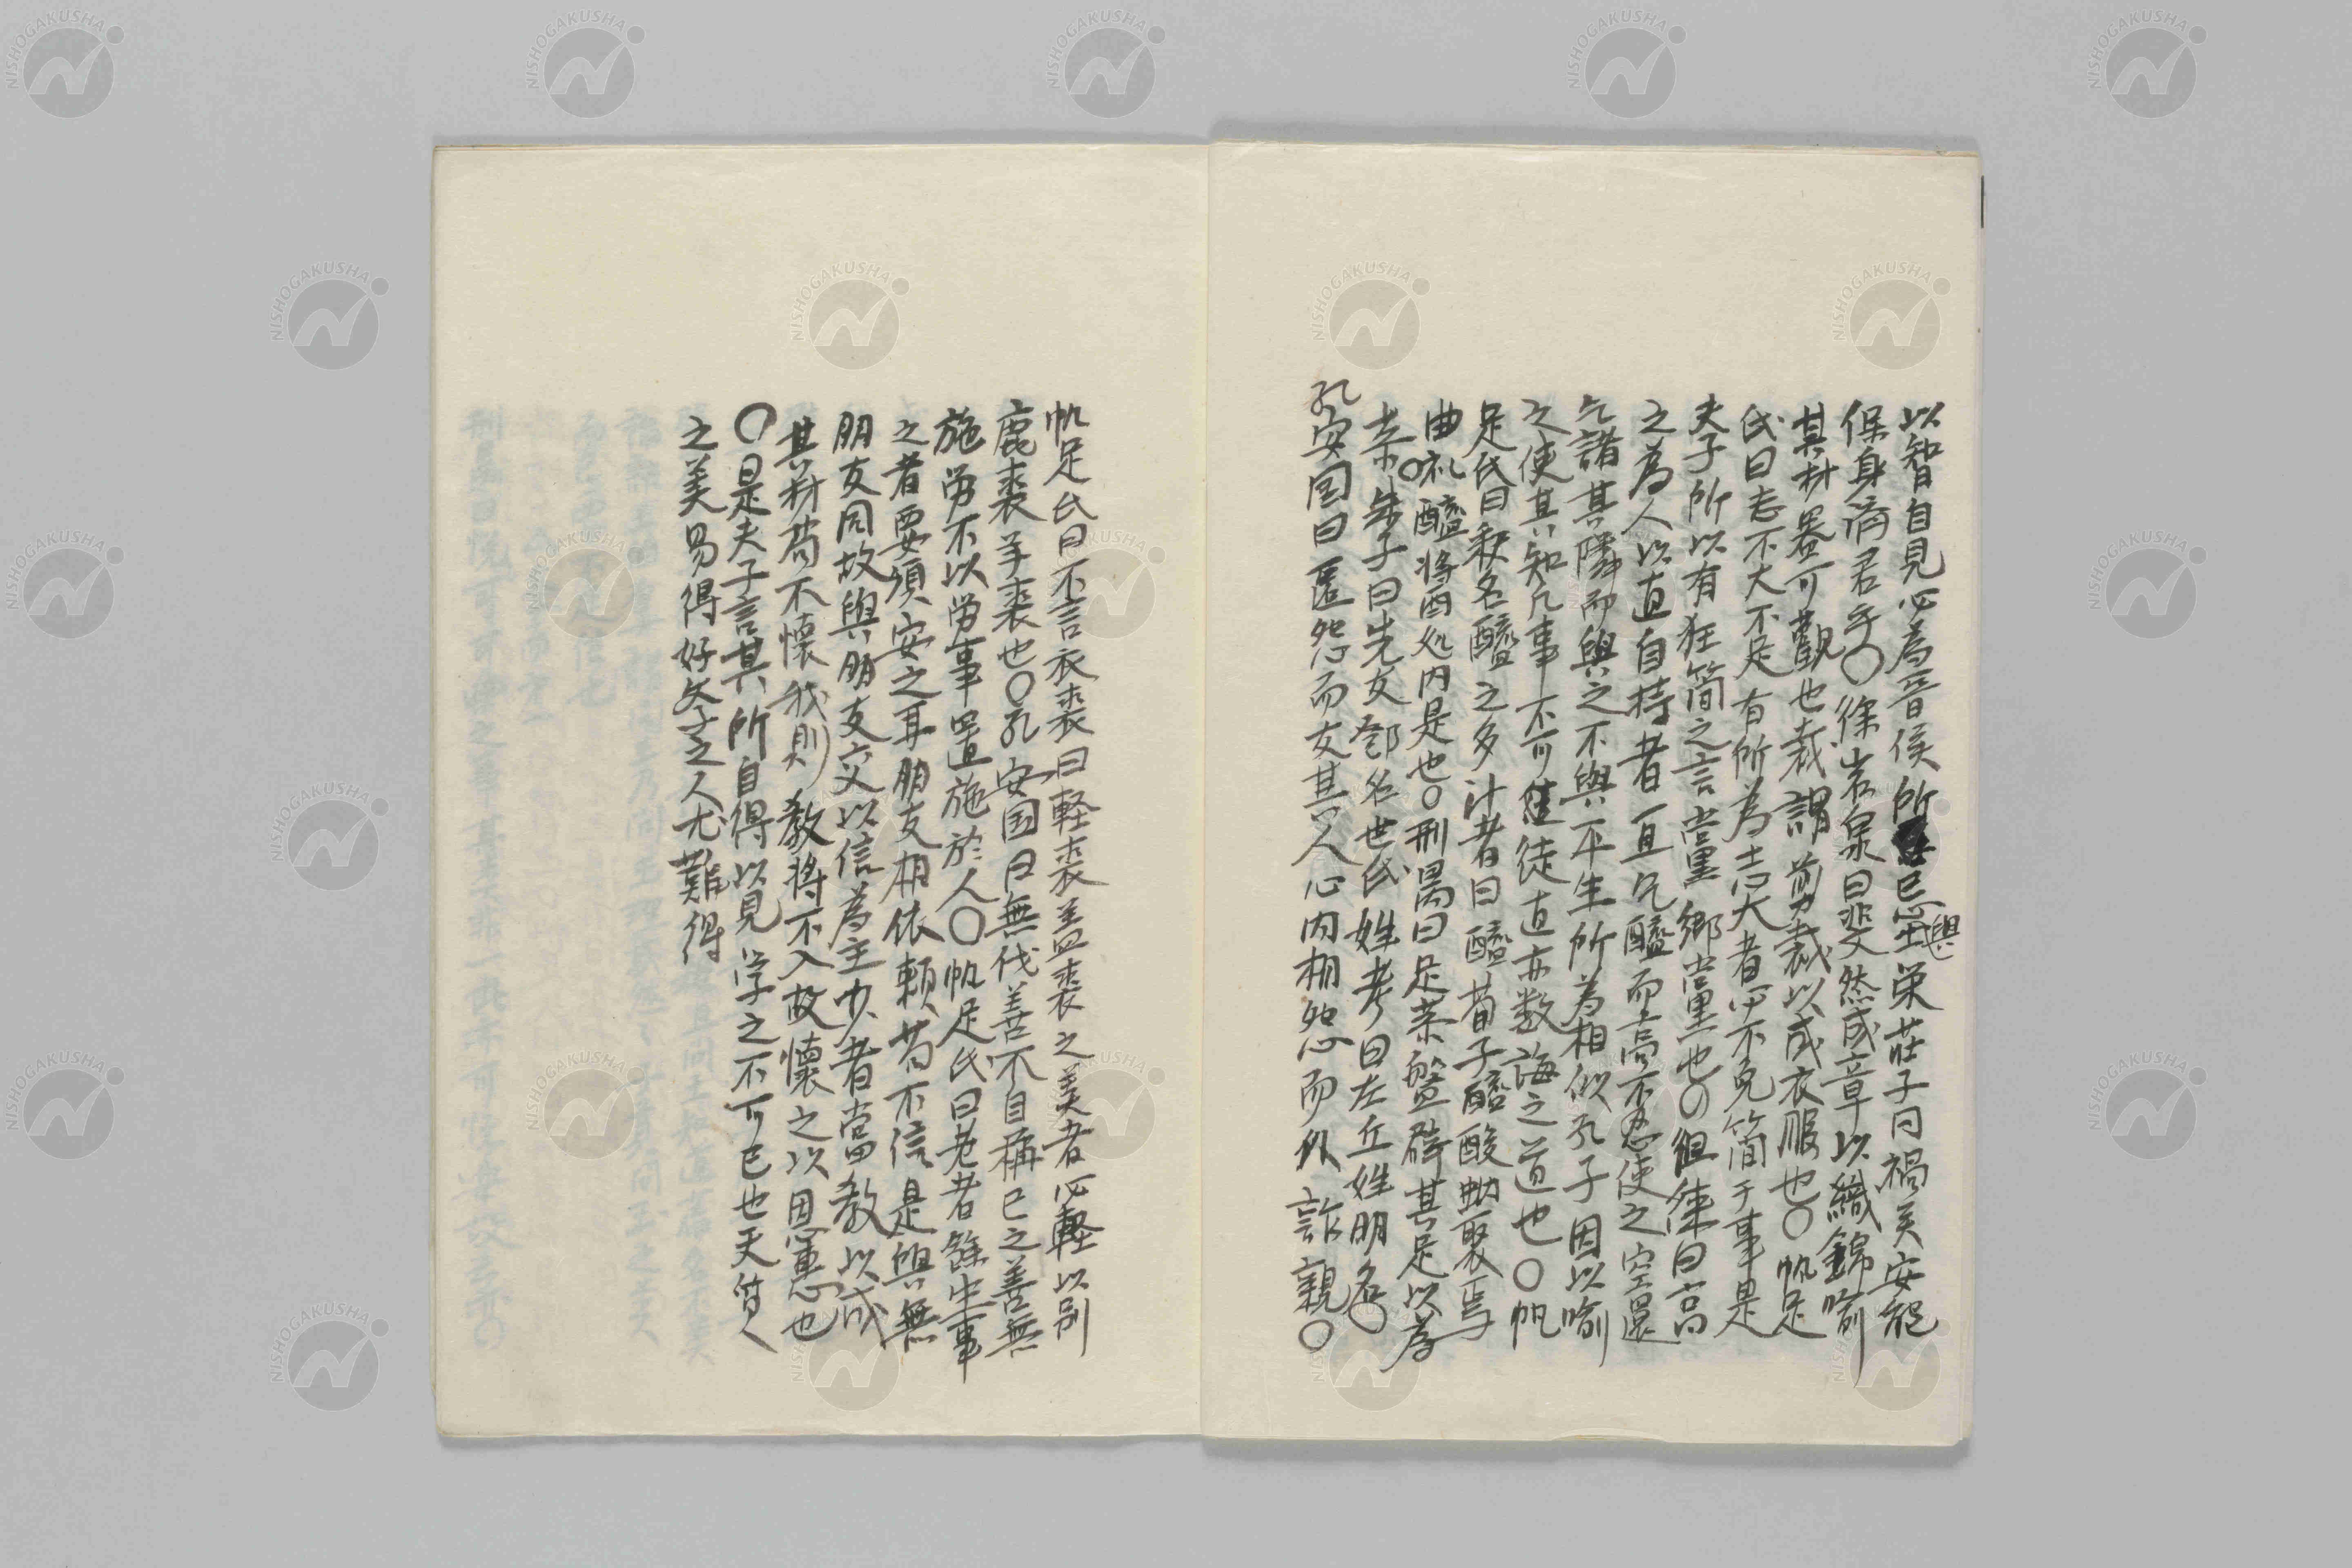 以智自見必為晋侯所忌与栄莊子同禍矣安能
與
保身済君乎〇徐岩泉曰斐然成章以織錦喻
其材器可觀也裁謂剪裁以成衣服也〇帆足
氏曰志不大不足有所為志大者必不免簡于事是
夫子所以有狂簡之言黨郷黨也〇徂徠曰高
之為人以直自持者一旦乞醯而高不忍使之空還
乞諸其隣而與之不與平生所為相似孔子因以喻
之使其知凡事不可徒直亦教誨之道也〇帆
足氏曰釈名醯之多汁者曰醯荀子醯酸蚋聚焉
曲礼醯将酉処内是也〇刑昺曰足恭盤辟其足以為
恭〇朱子曰先友鄧名世氏姓考曰左丘姓明名〇
孔安国曰匿怨而友其人心内相怨而外詐親〇
帆足氏曰不言衣裘曰軽裘盖裘之美者必軽以別
鹿裘羊裘也〇孔安国曰無伐善不自稱己之善無
施労不以労事置施於人〇帆足氏曰老者餘生事
之者要須安之耳朋友相依賴苟不信是與無
朋友同故與朋友交以信為主少者當教以成
其材苟不懐我則教将不入故懐之以恩惠也
〇是夫子言其所自得以見学之不可已也天質
之美易得好学之人尤難得